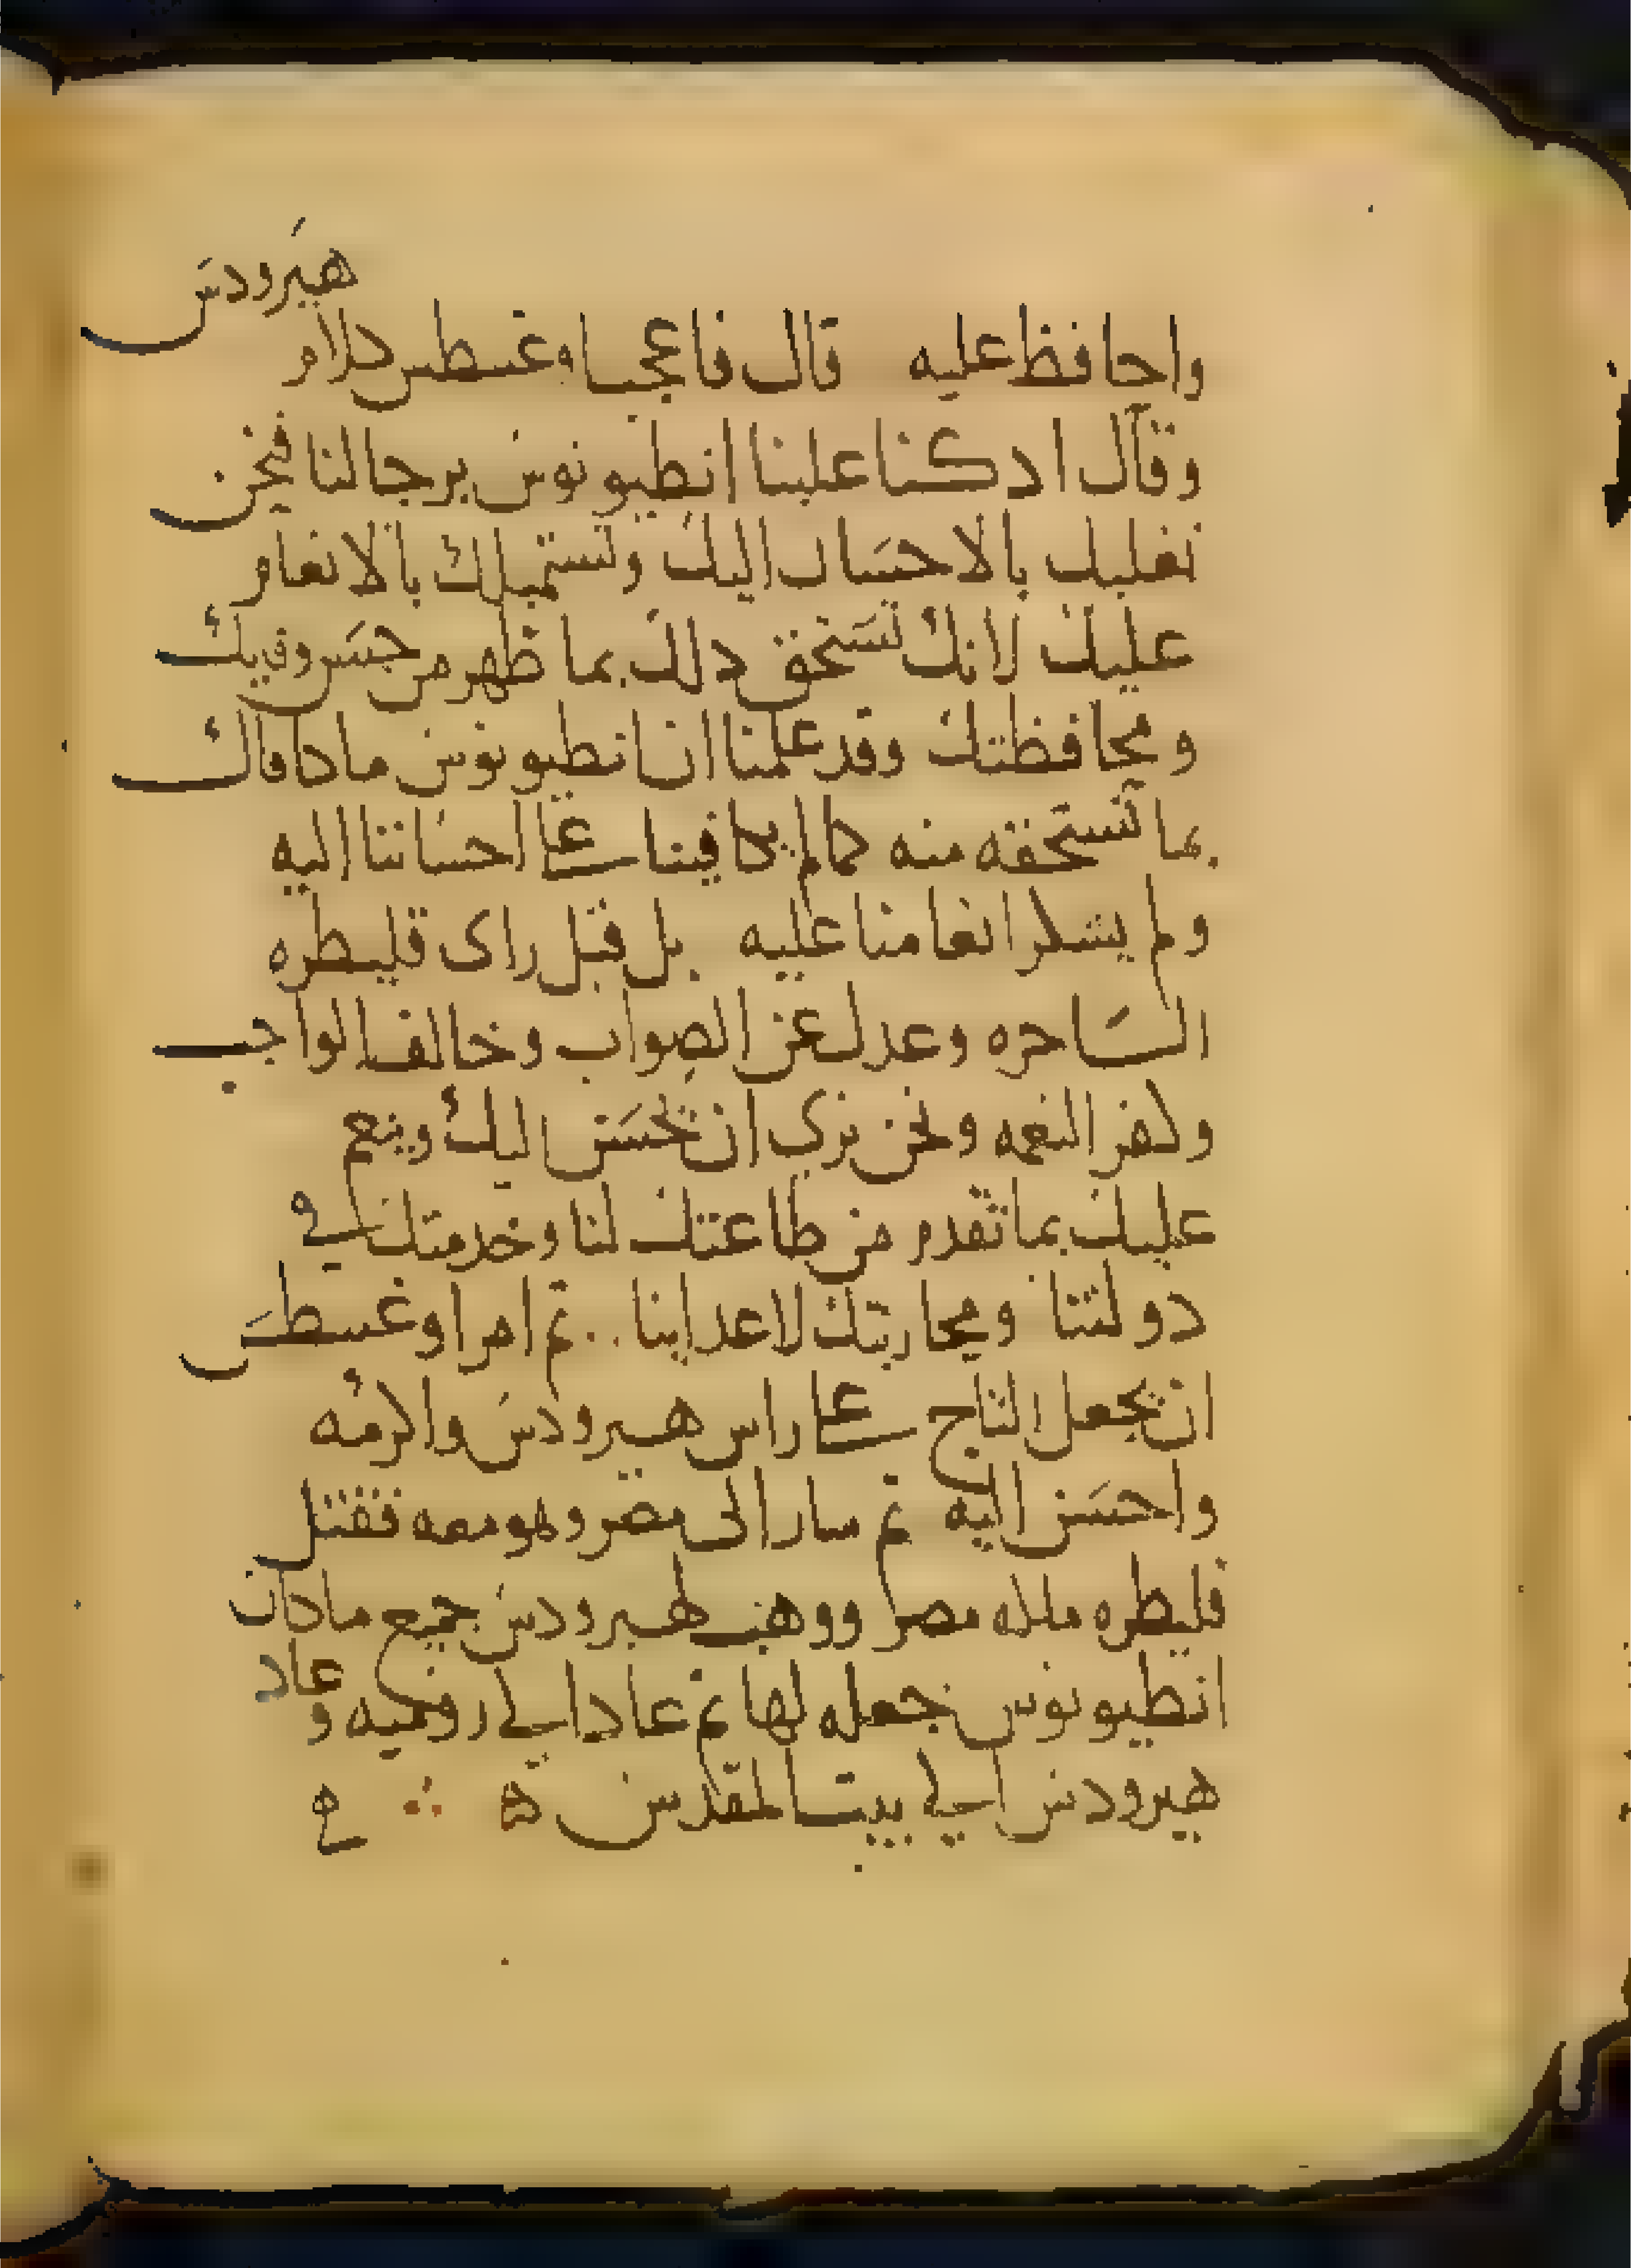 هيرودس
واحافظ عليه قال فاعجب اوغسطس كلام
وقال ان كنا غلبنا انطيونوس برجالنا فنحن
نغلبك بالاحسان اليك ونستميلك بالانعام
عليك لانك تستحق دلك بما ظهر من حسن وفايك
ومحافظتك وقد علمنا ان انطيونوس ماكافاك
بما تستحقه منه كما لم يكافينا على احساننا اليه
ولم يشكر انعامنا عليه بل قبل راى قليطره
الساحره وعدل عن الصواب وخالف الواجب
وكفر النعمه ونحن نرى ان نحسن اليك وننعم
عليك بما تقدم من طاعتك لنا وخدمتك في
دولتنا ومحاربتك لاعداينا .. ثم امر اوغسطس
ان يجعل التاج على راس هيرودس واكرمه
واحسن اليه ثم سار الى مصر وهو معه فقتل
قليطره ملكه مصر ووهب لهيرودس جميع ماكان
انطيونوس جعله لها ثم عاد الى روميه وعاد
هيرودس الى بيت المقدس